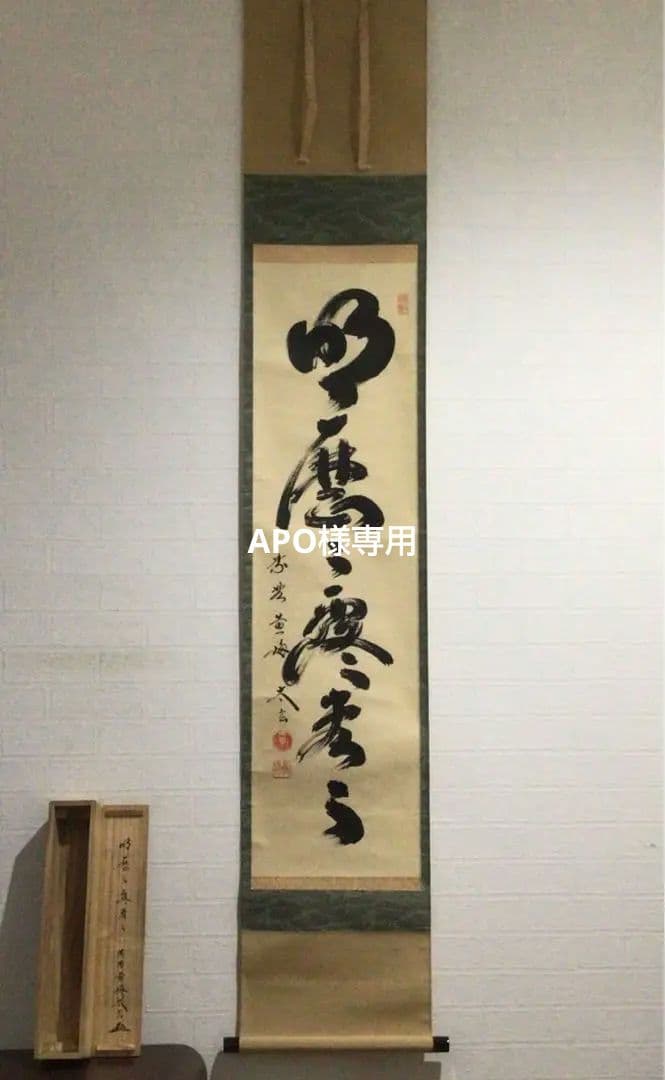 明歴々露堂々
黄梅 太玄
APO様専用
明歴々露堂々